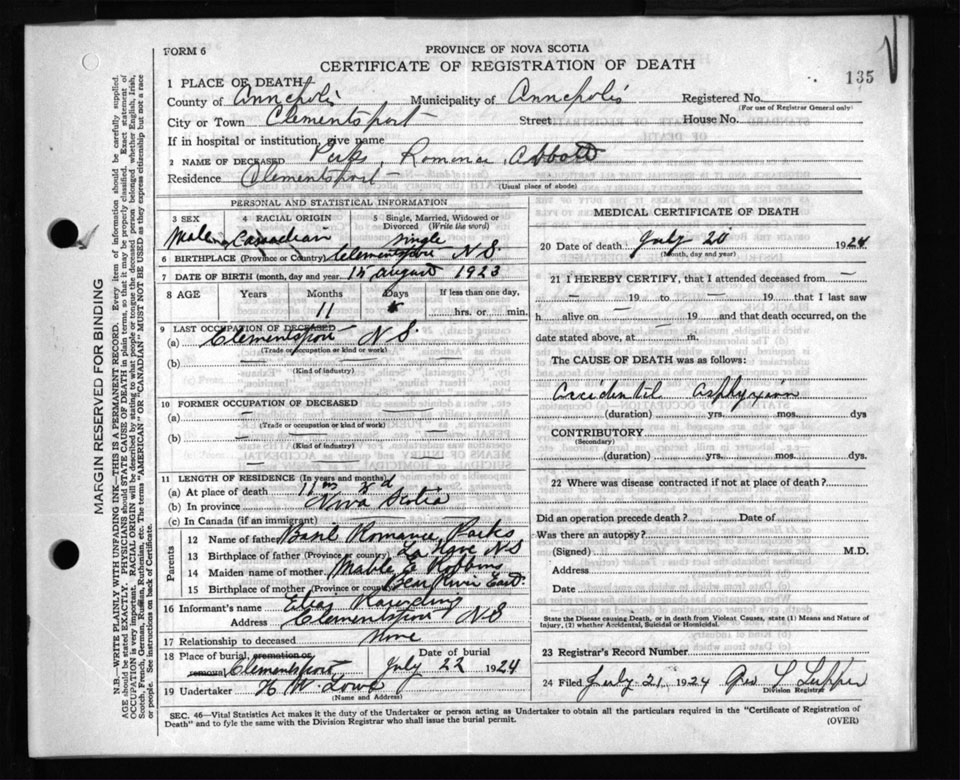 FORM 6
PROVINCE OF NOVA SCOTIA
CERTIFICATE OF REGISTRATION OF DEATH
135
1 PLACE OF DEATH
County of Annapolis Municipality of Annapolis Registered No.
(For use of Registrar General only)
City or Town Clementsport Street House No.
If in hospital or institution, give name
2 NAME OF DECEASED Parks, Romance Abbott
Residence Clementsport
(Usual place of abode)
PERSONAL AND STATISTICAL INFORMATION
3 SEX 4 RACIAL ORIGIN 5 Single, Married, Widowed or Divorced (Write the word)
Male Canadian Single
6 BIRTHPLACE (Province or Country) Clementsport N.S.
7 DATE OF BIRTH (month, day and year) 15 August 1923
8 AGE Years Months Days If less than one day,
11 5 hrs. or min.
9 LAST OCCUPATION OF DECEASED
(a) Clementsport N.S.
(Trade or occupation or kind or work)
(b)
(Kind of industry)
10 FORMER OCCUPATION OF DECEASED
(a)
(Trade or occupation or kind of work)
(b)
(Kind of industry)
11 LENGTH OF RESIDENCE (In years and months)
(a) At place of death 11 m
(b) In province Nova Scotia
(c) In Canada (if an immigrant)
Parents
12 Name of father Basil Romance Parks
13 Birthplace of father (Province or country) La Have N S
14 Maiden name of mother Mable E Robbins
15 Birthplace of mother (Province or country) Bear River East.
16 Informant's name Elias
Address Clementsport N S
17 Relationship to deceased None
18 Place of burial, cremation or removal Date of burial
Clementsport July 22 1924
19 Undertaker H. W. Lowe
(Name and Address)
MEDICAL CERTIFICATE OF DEATH
20 Date of death July 20 1924
(Month, day and year)
21 I HEREBY CERTIFY, that I attended deceased from —
— 19 to — 19 that I last saw
h alive on — 19 and that death occurred, on the
date stated above, at — m.
The CAUSE OF DEATH was as follows:
Accidental Asphyxia
(duration) yrs. mos. dys
CONTRIBUTORY
(Secondary)
(duration) yrs. mos. dys.
22 Where was disease contracted if not at place of death?
Did an operation precede death? Date of
Was there an autopsy?
(Signed) M.D.
Address
Date
State the Disease causing Death, or in death from Violent Causes, state (1) Means and Nature of
Injury, (2) whether Accidental, Suicidal or Homicidal.
23 Registrar's Record Number
24 Filed July 21, 1924 Geo L
Division Registrar
SEC. 46—Vital Statistics Act makes it the duty of the Undertaker or person acting as Undertaker to obtain all the particulars required in the "Certificate of Registration of
Death" and to fyle the same with the Division Registrar who shall issue the burial permit.
(OVER)
MARGIN RESERVED FOR BINDING
N.B.—WRITE PLAINLY WITH UNFADING INK—THIS IS A PERMANENT RECORD. Every item of information should be carefully supplied.
AGE should be stated EXACTLY. PHYSICIANS should STATE CAUSE OF DEATH in plain terms, so that it may be properly classified. Exact statement of
OCCUPATION is very important. RACIAL ORIGIN will be described by stating to what people or tongue the deceased person belonged, whether English, Irish,
Scotch, French, German, Russian, Ruthenian, etc. The terms "AMERICAN" OR "CANADIAN" MUST NOT BE USED as they express citizenship but not a race
or people. See instructions on back of Certificate.